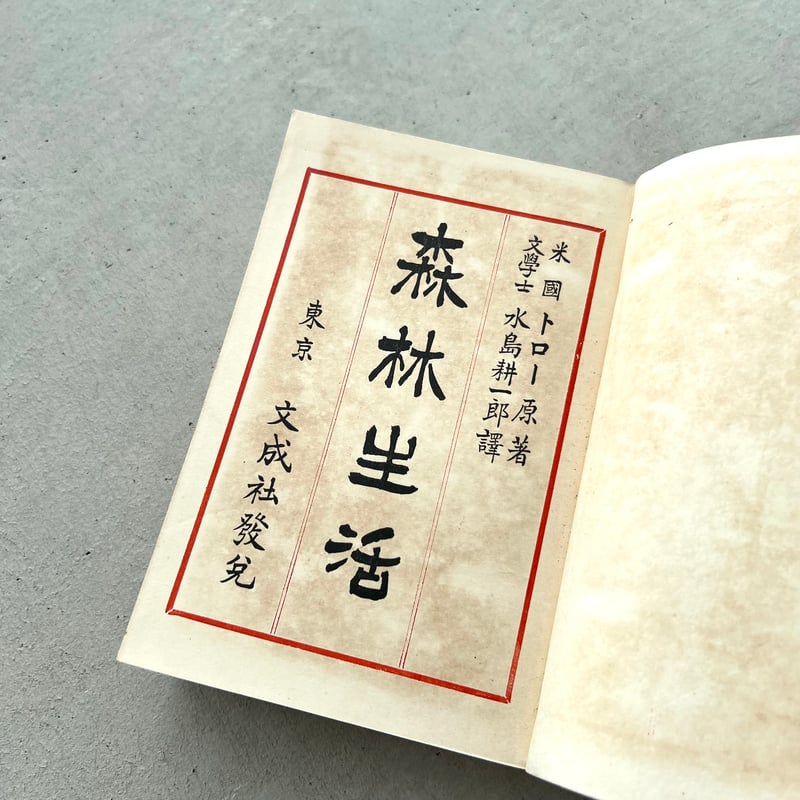 米國 トロー 原著
文學士 水島耕一郎 譯
森林生活
東京 文成社發兌